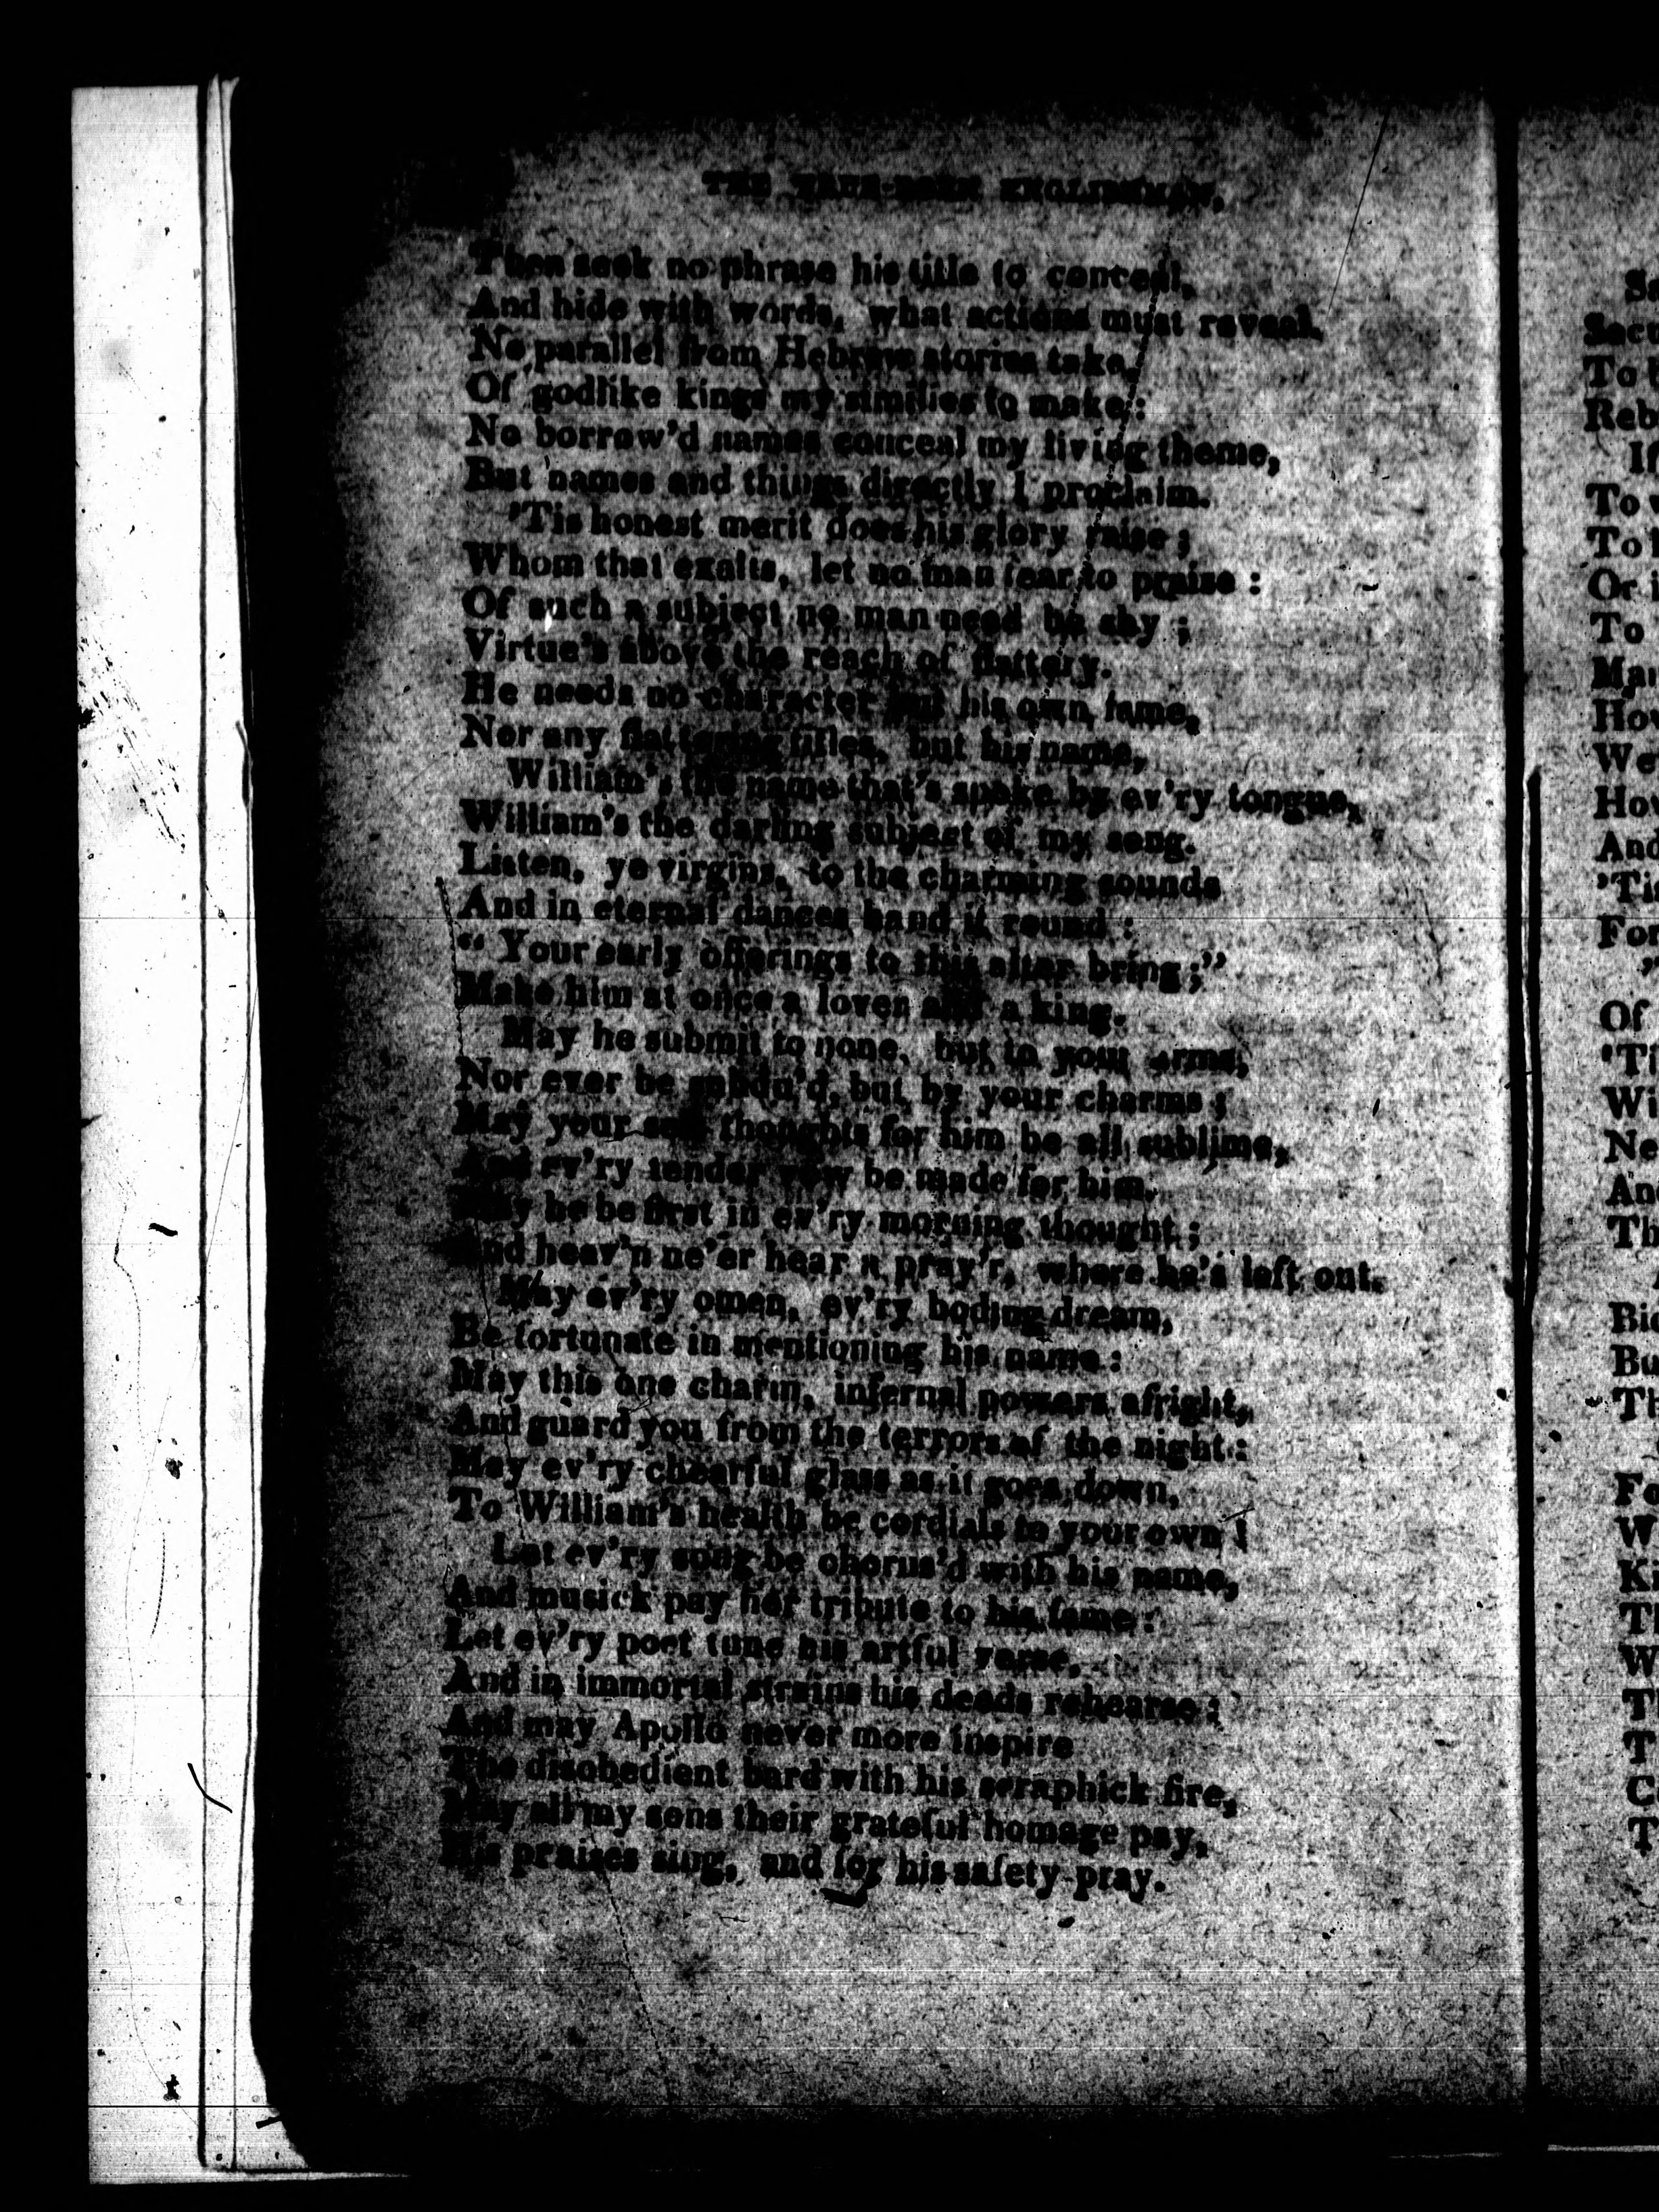 THE TRUE-BORN ENGLISHMAN,
Then seek no phrase his title to conceal,
And hide with words, what actions must reveal.
No parallel from Hebrew stories take,
Of godlike kings my similies to make:
No borrow'd names conceal my living theme,
But names and things directly I proclaim.
'Tis honest merit does his glory raise;
Whom that exalts, let no man fear to praise:
Of such a subject no man need be shy;
Virtue's above the reach of flattery.
He needs no character but his own fame,
Nor any flattering titles, but his name,
William's the name that's spoke by ev'ry tongue,
William's the darling subject of my song.
Listen, ye virgins, to the charming sounds
And in eternal dances hand it round:
"Your early offerings to this alter bring;"
Make him at once a lover and a king.
May he submit to none, but to your arms,
Nor ever be subdu'd, but by your charms;
May your soft thoughts for him be all sublime,
And ev'ry tender vow be made for him.
May he be first in ev'ry morning thought;
And heav'n ne'er hear a pray'r, where he's left out.
May ev'ry omen, ev'ry boding dream,
Be fortunate in mentioning his name:
May this one charm, infernal powers afright,
And guard you from the terrors of the night:
May ev'ry cheerful glass as it goes down,
To William's health be cordials to your own!
Let ev'ry song be chorus'd with his name,
And musick pay her tribute to his fame:
Let ev'ry poet tune his artful verse,
And in immortal strains his deeds rehearse:
And may Apollo never more inspire
The disobedient bard with his seraphick fire,
May all my sons their grateful homage pay,
His praises sing, and for his safety pray.